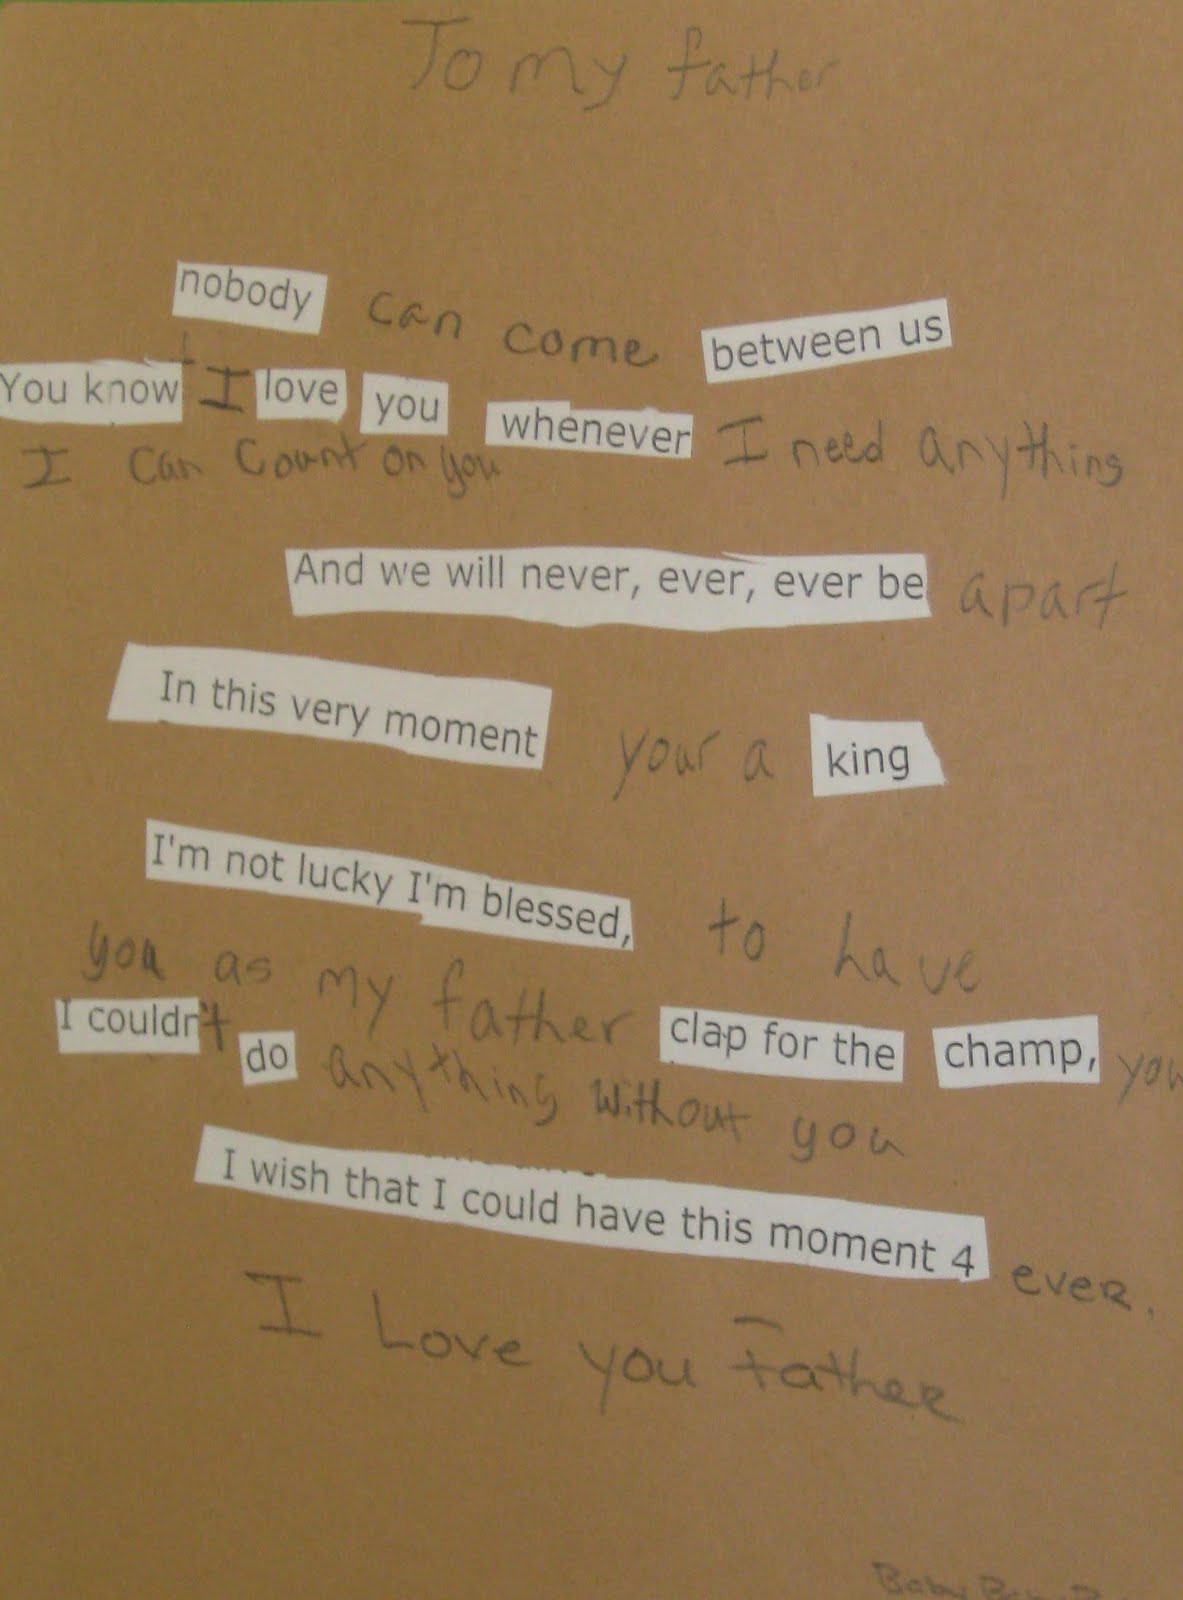 To my father
nobody can come between us
You know I love you whenever I need anything
I can count on you
And we will never, ever, ever be apart
In this very moment your a king
I'm not lucky I'm blessed, to have
you as my father clap for the champ, you
I couldn't do anything without you
I wish that I could have this moment 4 ever.
I Love you Father
Baby